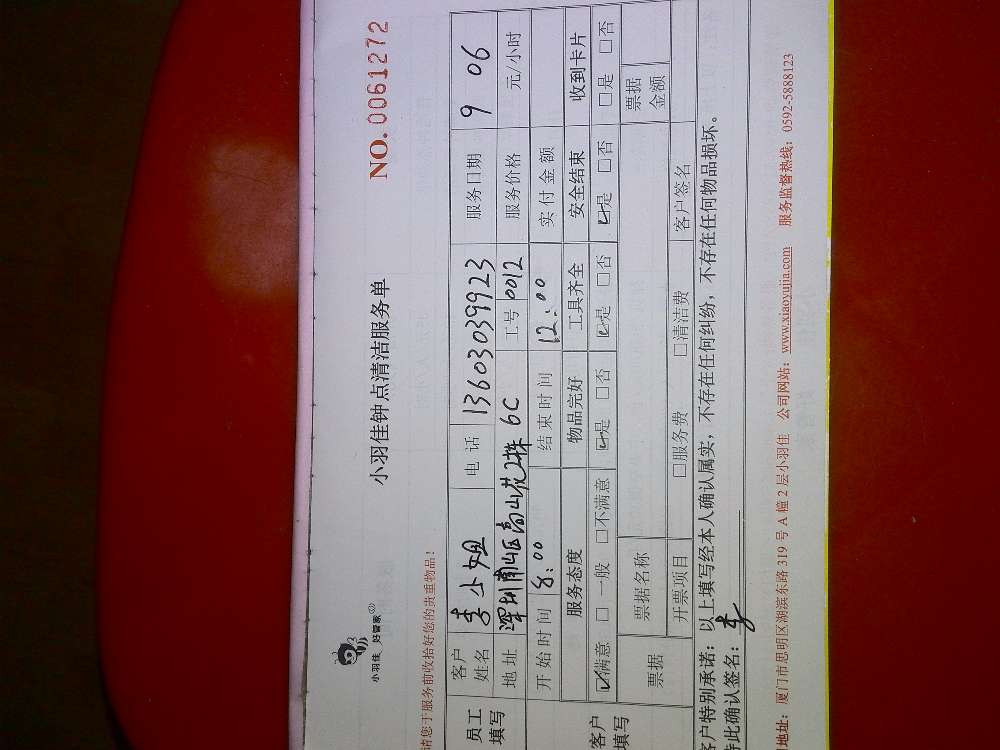 小羽佳 好管家
NO.0061272
小羽佳钟点清洁服务单
请您于服务前收拾好您的贵重物品!
员工填写
客户姓名 李小姐 电话 13603039923 服务日期 9 06
地址 深圳南山区高山花2栋6C 工号 0012 服务价格 元/小时
开始时间 8:00 结束时间 12:00 实付金额
客户填写
服务态度 物品完好 工具齐全 安全结束 收到卡片
☑满意 □一般 □不满意 ☑是 □否 ☑是 □否 ☑是 □否 □是 □否
票据 票据名称 票据金额
开票项目 □服务费 □清洁费 客户签名
客户特别承诺:以上填写经本人确认属实,不存在任何纠纷,不存在任何物品损坏。
特此确认签名: 李
地址:厦门市思明区湖滨东路 319 号 A 幢 2 层小羽佳 公司网站:www.xiaoyujia.com 服务监督热线:0592-5888123